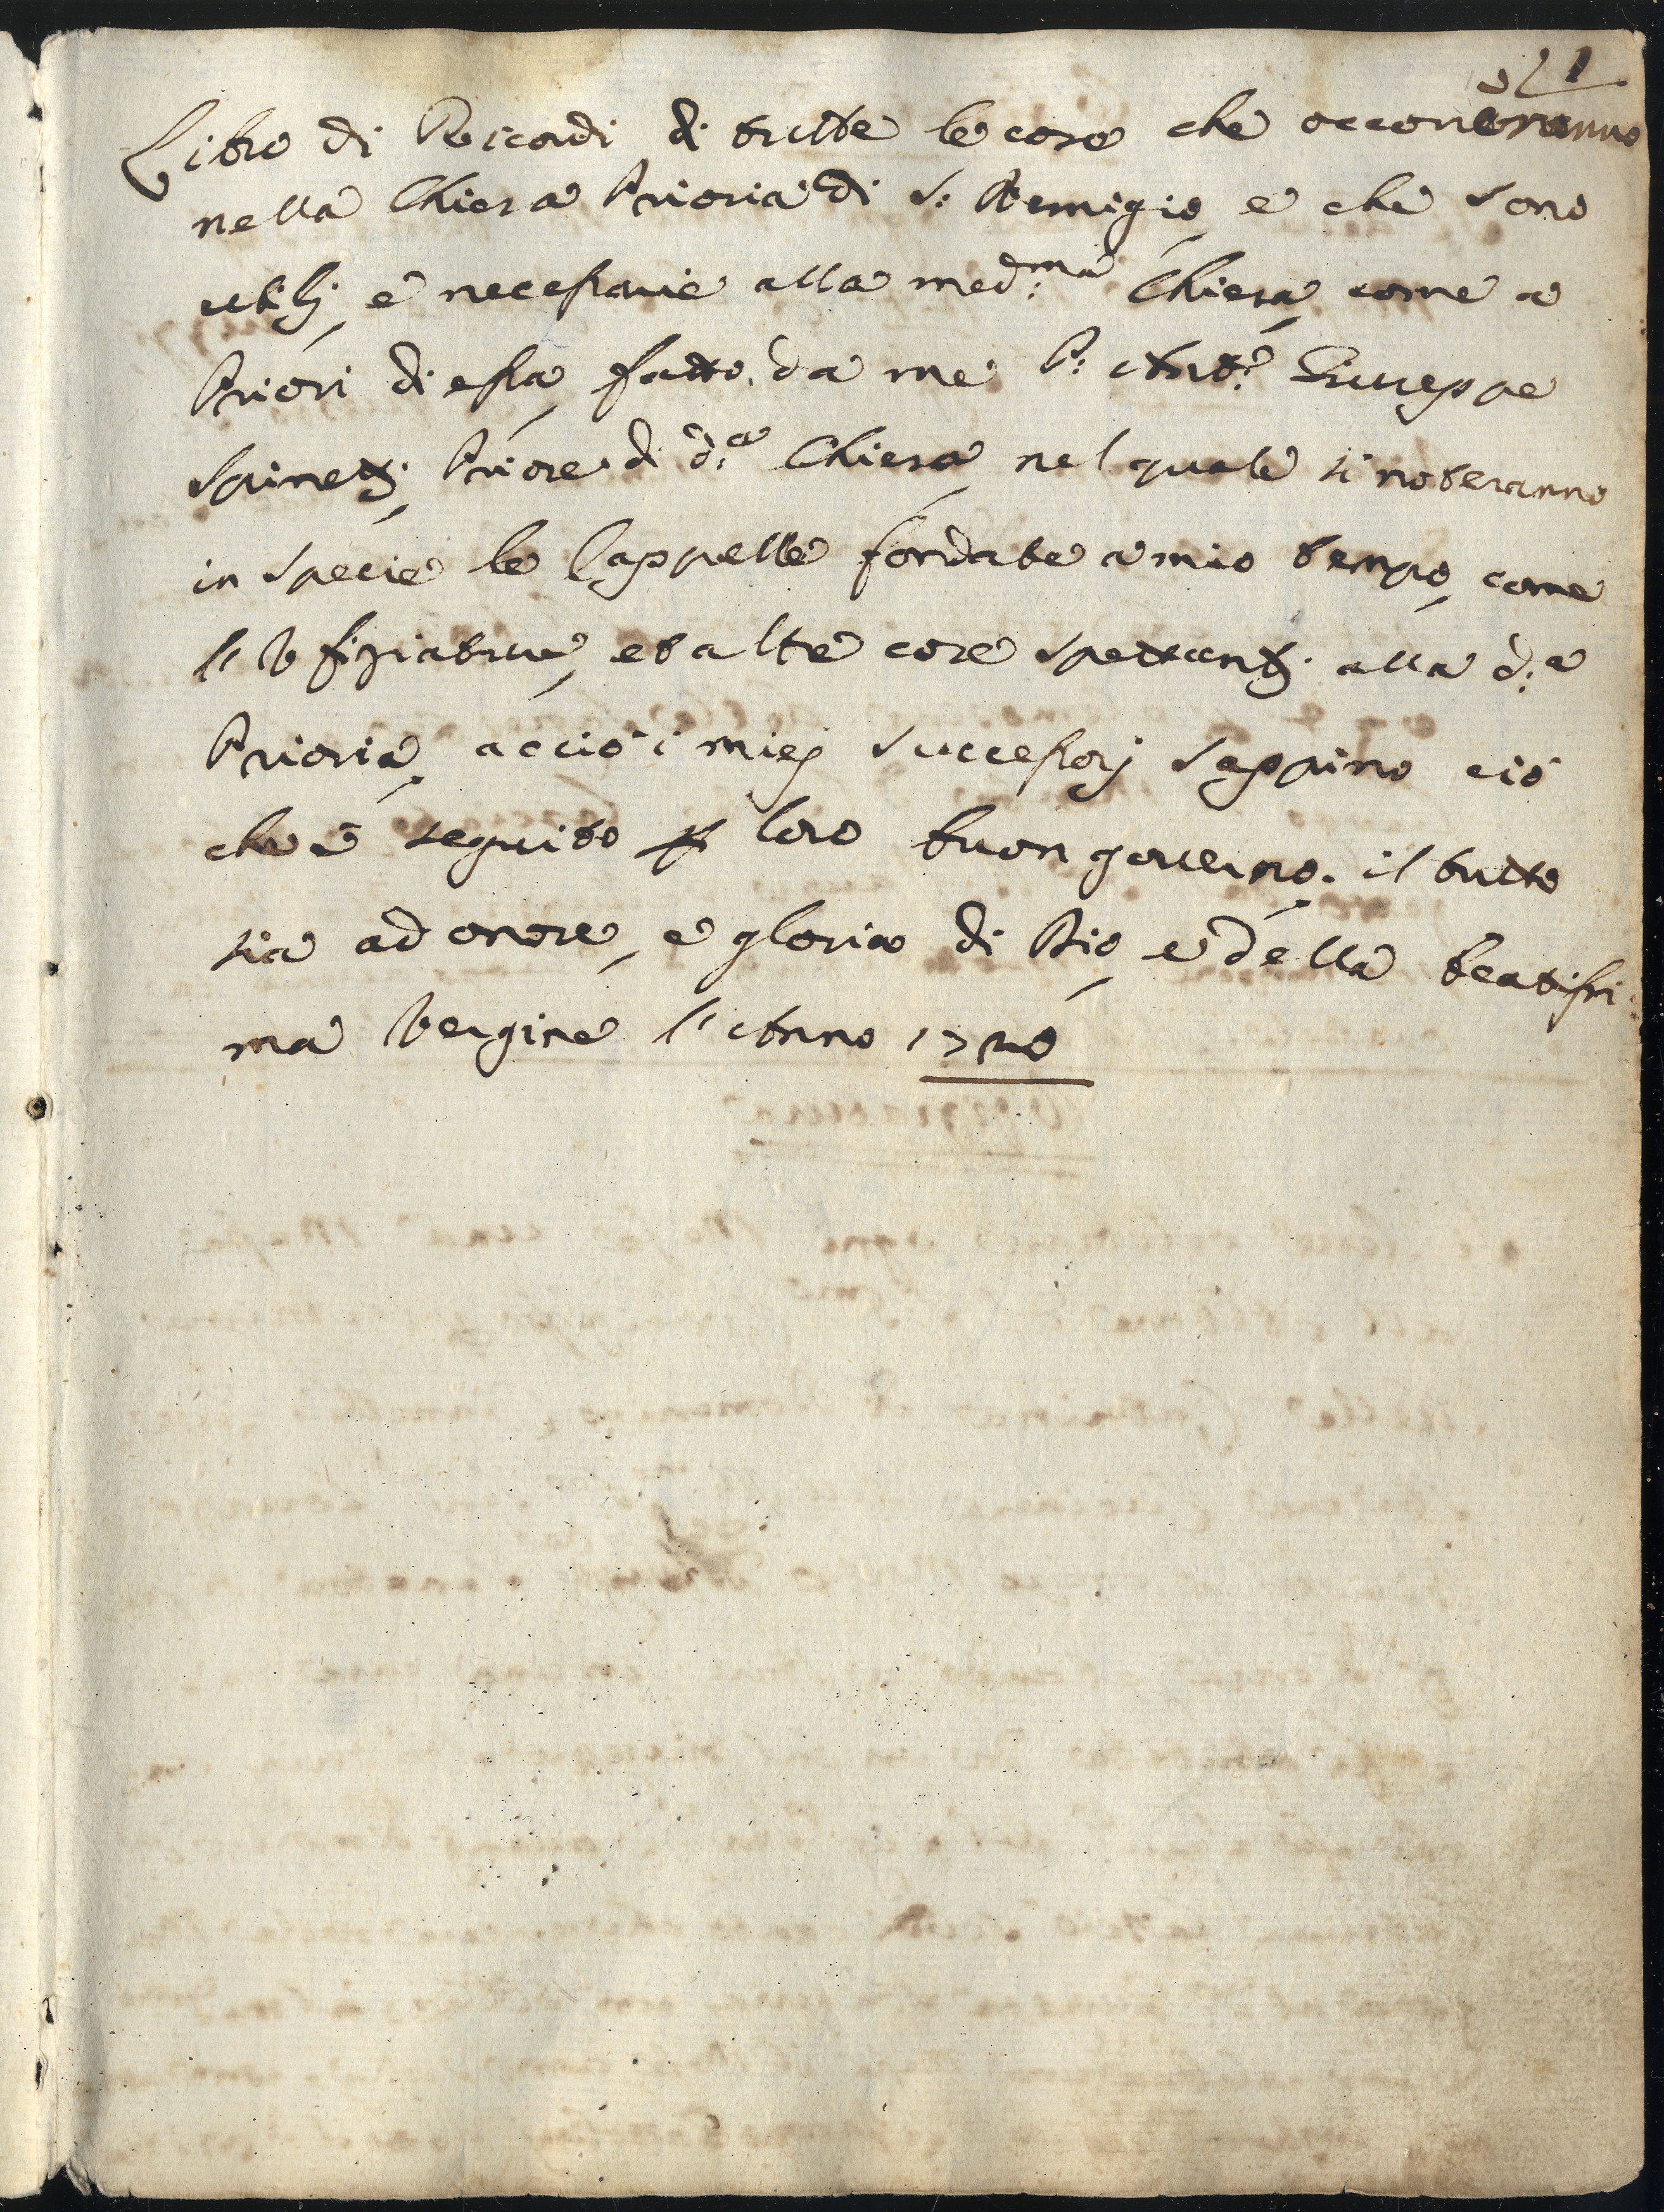 1
Libro di Ricordi di tutte le cose che occorreranno
nella Chiesa Prioria di S: Remigio, e che sono
utilj, e necessarie alla med:ma Chiesa, come a
Priori di essa, fatto da me P: Ant:o Giuseppe
Spinetj, Priore di d:a Chiesa, nel quale si noteranno
in specie le Cappelle fondate a mio tempo, come
l'Ufiziature, et altre cose spettantj alla d:a
Prioria, acciò i miej successorj sappino ciò
che è seguito p loro buon governo, il tutto
sia ad onore, e gloria di Dio, e della beatissi-
ma Vergine l'Anno